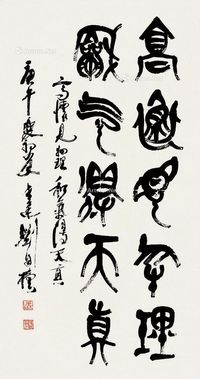 高澹見物理
和氣得天真
高澹見物理 和氣得天真
庚午
劉自櫝